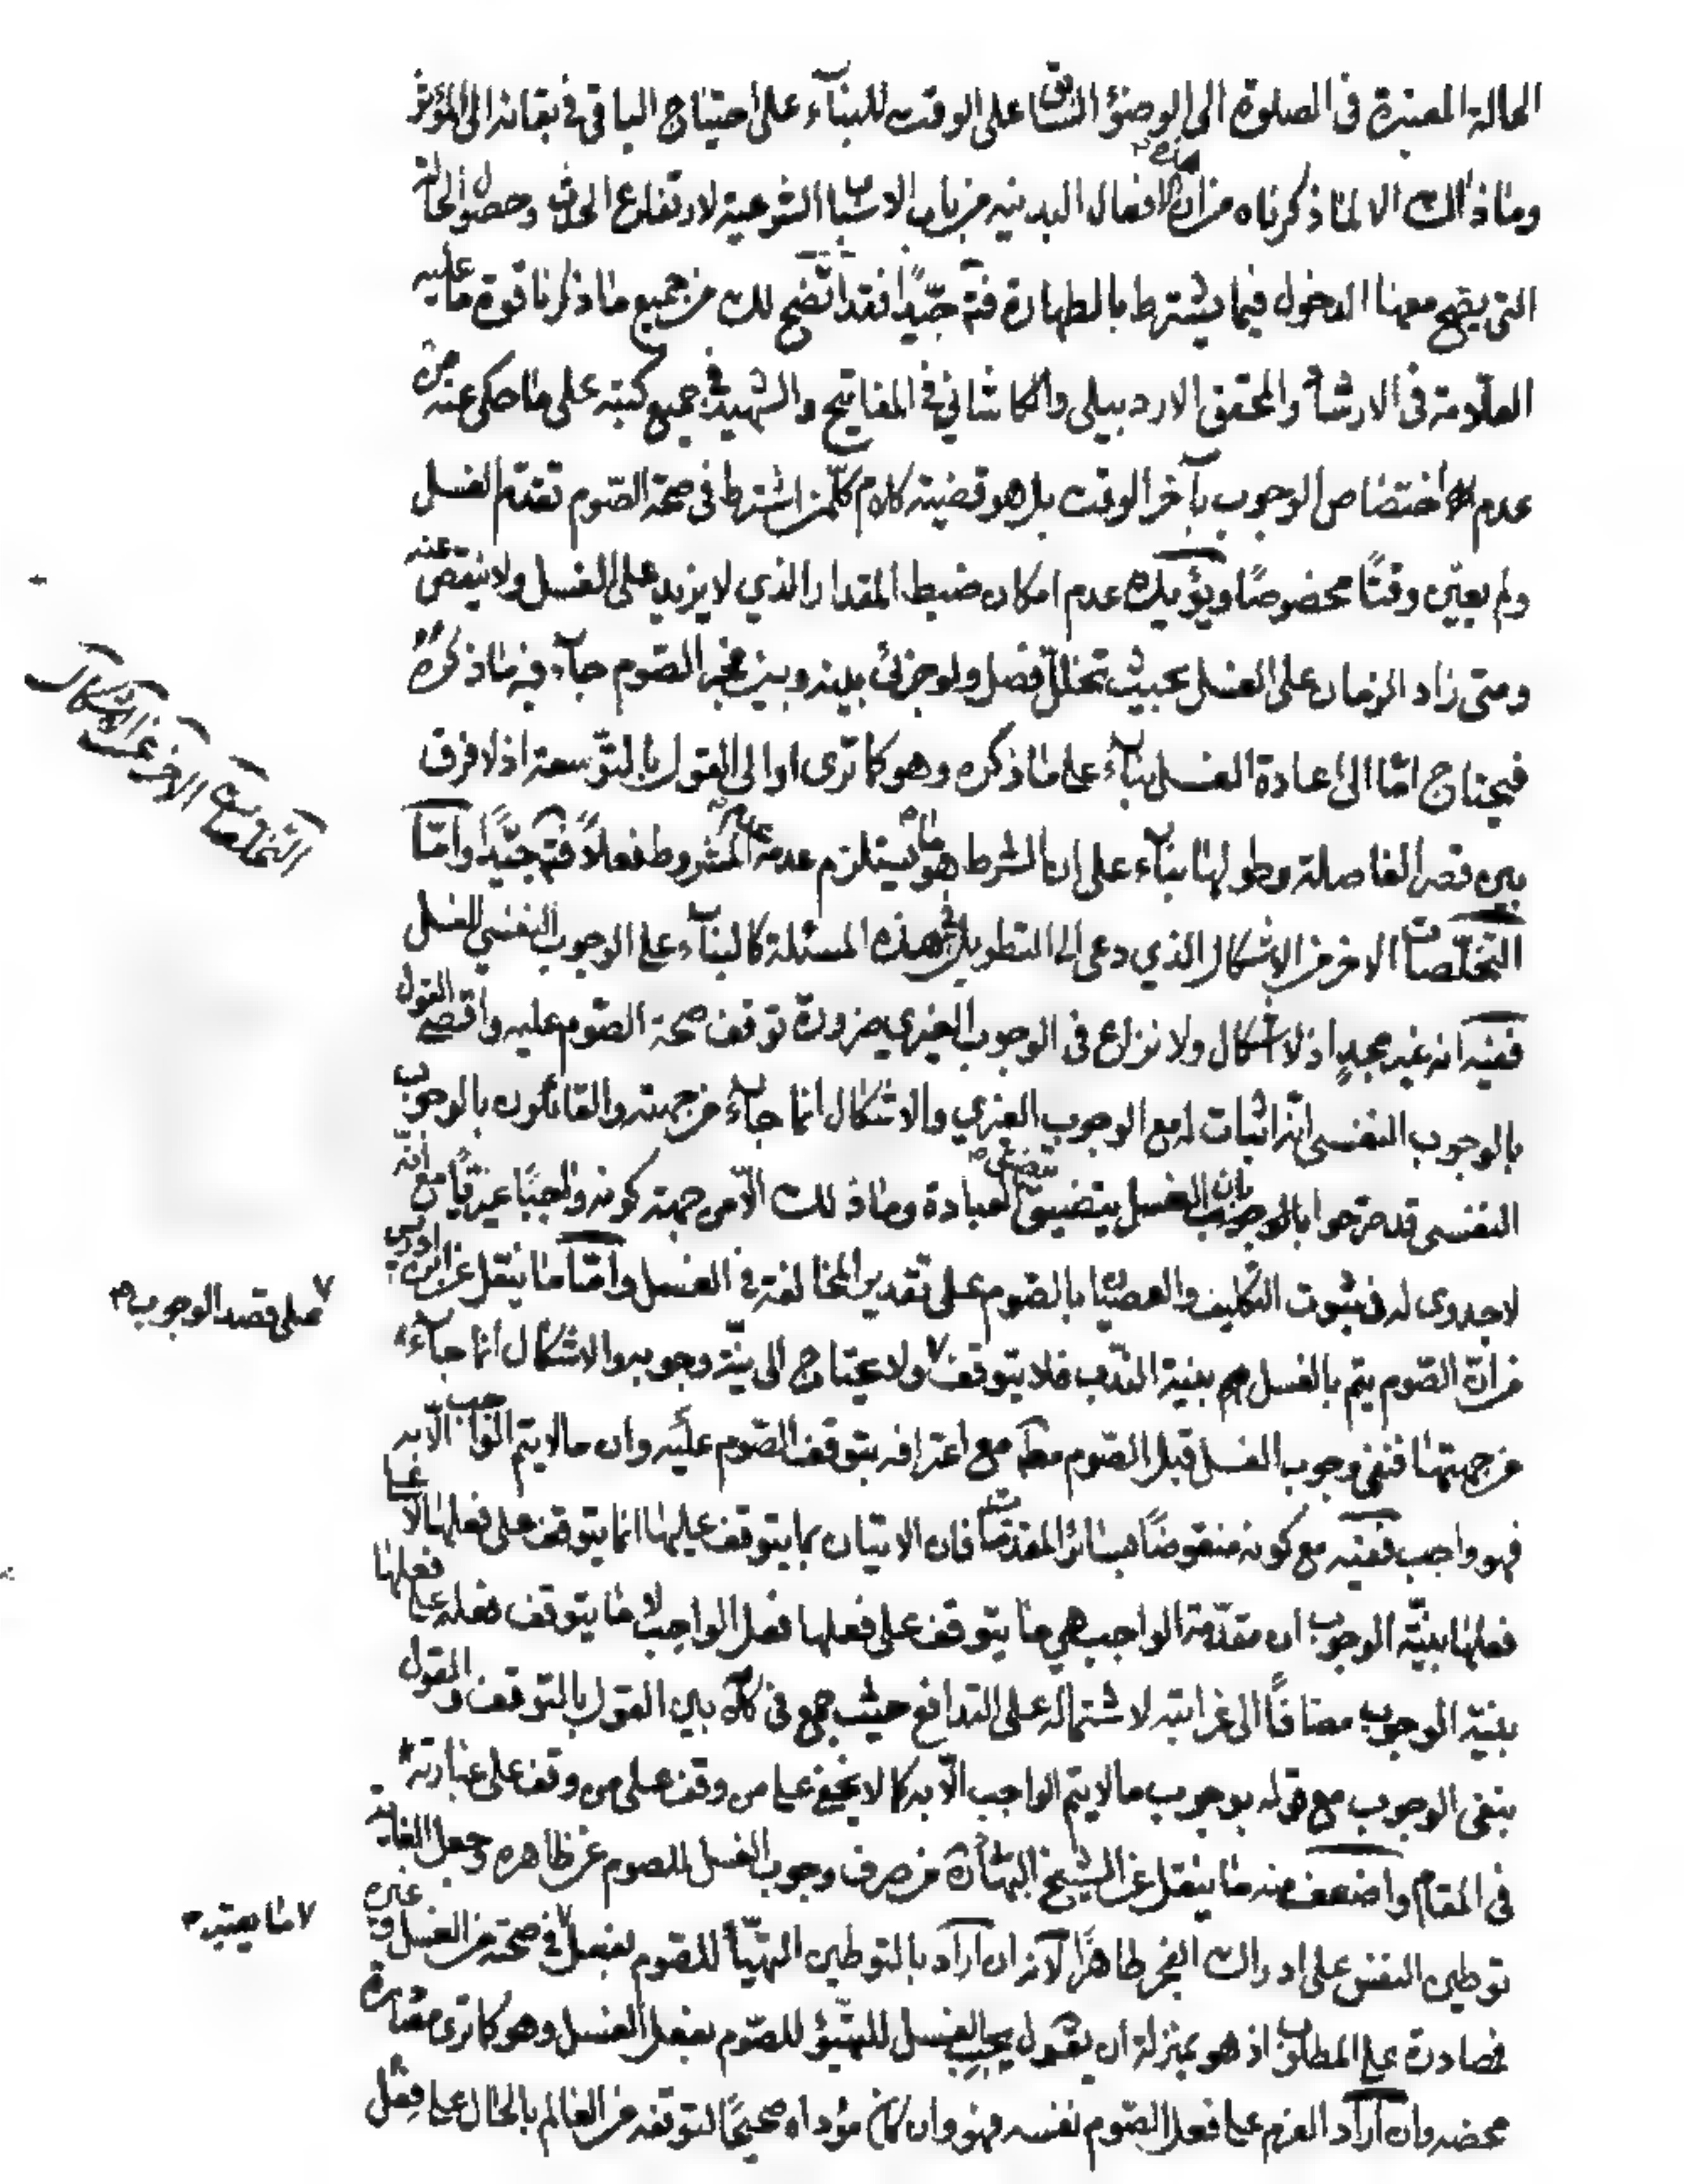 الحالة المعتبرة في الصلوة الى الوضؤ السابق على الوقت للبنآء على احتياج الباقي في بقائه الى المؤثر
وماذالك الا لما ذكرناه من ان هذه الافعال البدنيه من باب الاسباب الشرعية لارتفاع الحدث وحصول الحالة
التي يصح معها الدخول فيما يشترط بالطهارة فتم جيّدًا فقد اتّضح لك من جميع ما ذكرنا قوة ما عليه
العلّامة في الارشاد والمحقق الاردبيلي والكاشاني في المفاتيح والشهيد في جميع كتبه على ما حكى عنه من
عدم اختصاص الوجوب بآخر الوقت بل هو قضية كلام كلّ من اشترط في صحة الصّوم تقدّم الغسل
ولم يعيّن وقتًا مخصوصًا ويؤيّده عدم امكان ضبط المقدار الذي لا يزيد على الغسل ولا ينقص عنه
ومتى زاد الزمان على الغسل بحيث تخلّل فصل ولو جزئى بينه وبين فجر الصّوم جآء فيه ما ذكره
فيحتاج امّا الى اعادة الغسل بنآء على ما ذكره وهو كما ترى او الى القول بالتوّسعة اذ لا فرق
بين قصر الفاصلة وطولها بنآء على ان الشرط هو ما يستلزم عدمه عدم المشروط فعلاً فتم جيّدًا وامّا
التخلّصات الاخر من الاشكال الذي دعى الى التطويل في هذه المسئلة كالبنآء على الوجوب النفسي للغسل
ففيه انه غير مجدٍ اذ لا اشكال ولا نزاع في الوجوب الغيري ضرورة توقف صحة الصّوم عليه واقصى القول
بالوجوب النفسي انّه اثبات له مع الوجوب الغيري والاشكال انما جآء من جهته والقائلون بالوجوب
النفسي قد صرّحوا بان الغسل يتضيّق بتضيّق العبادة وما ذلك الّا من جهة كونه واجبًا غيريًّا مع انّه
لا جدوى له في ثبوت التكليف والعصيان بالصّوم على تقدير المخالفة في الغسل وامّا ما ينقل عن ابن ادريس
من انّ الصّوم يتم بالغسل بنية الندب فلا يتوقف ٧ ولا يحتاج الى نيّة وجوبه والاشكال انما جآء
من جهتها فنفى وجوب الغسل قبل الصّوم مع اعترافه بتوقف الصّوم عليه وان ما لا يتم الواجب الّا به
فهو واجب ففيه مع كونه منقوضًا بسائر المقدمات فان الاتيان بما يتوقف عليها انما يتوقف على فعلها لا على
فعلها بنيّة الوجوب ان مقدّمة الواجب هي ما يتوقف على فعلها فعل الواجب لا ما يتوقف فعله على فعلها
بنية الوجوب مضافًا الى غرابته لاشتماله على التدافع حيث جمع في كلامه بين القول بالتوقف والقول
بنفى الوجوب مع قوله بوجوب ما لا يتم الواجب الّا به كما لا يخفى على من وقف على من وقف على عبارته
في المقام واضعف منه ما ينقل عن الشيخ البهائى من صرف وجوب الغسل للصوم عن ظاهره وجعل الغاية
توطين النفس على ادراك الفجر طاهرًا لانه ان اراد بالتوطين التهيّأ للصّوم بفعل ٧ في صحته من الغسل وغيره
فمصادرة على المطلوب اذ هو بمنزلة ان يقول يجب الغسل للتهيّؤ للصّوم بفعل الغسل وهو كما ترى مصادرة
محضه وان اراد العزم على فعل الصّوم نفسه فهو وان كان مؤداه صحيحًا لتوقفه من العالم بالحال على فعل
التخلصات الاخر عن الاشكال
٧ على قصد الوجوب
٧ ما يعتبر